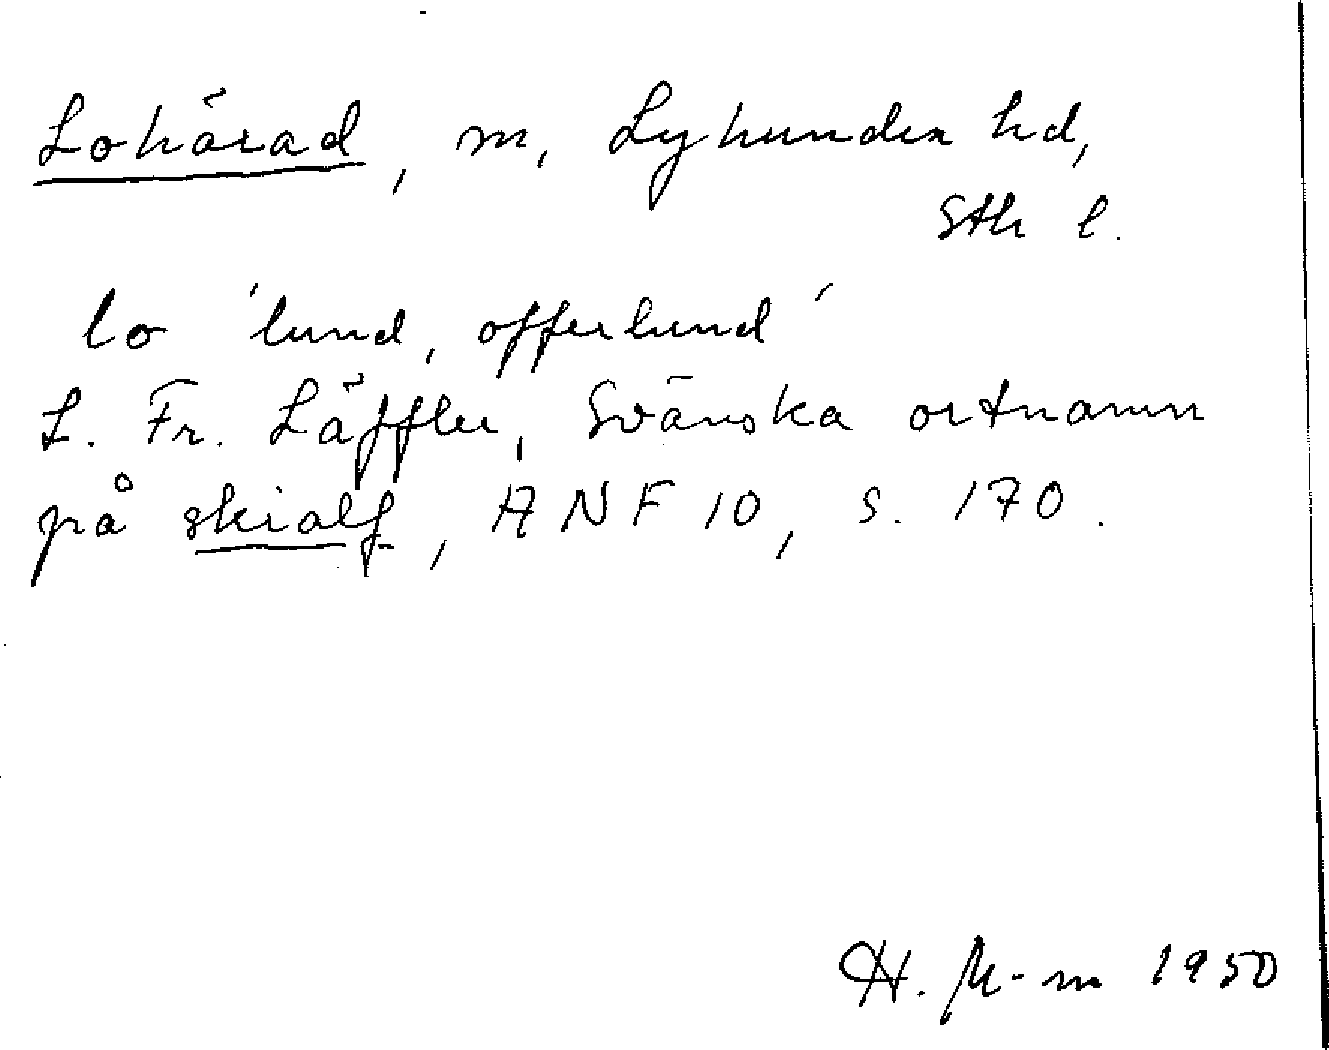 Lohärad, m, Lyhundra hd,
Sth l.
lo 'lund, offerlund'
L. Fr. Läffler, Svänska ortnamn
på skialf, ANF 10, s. 170.
H. M-m 1950